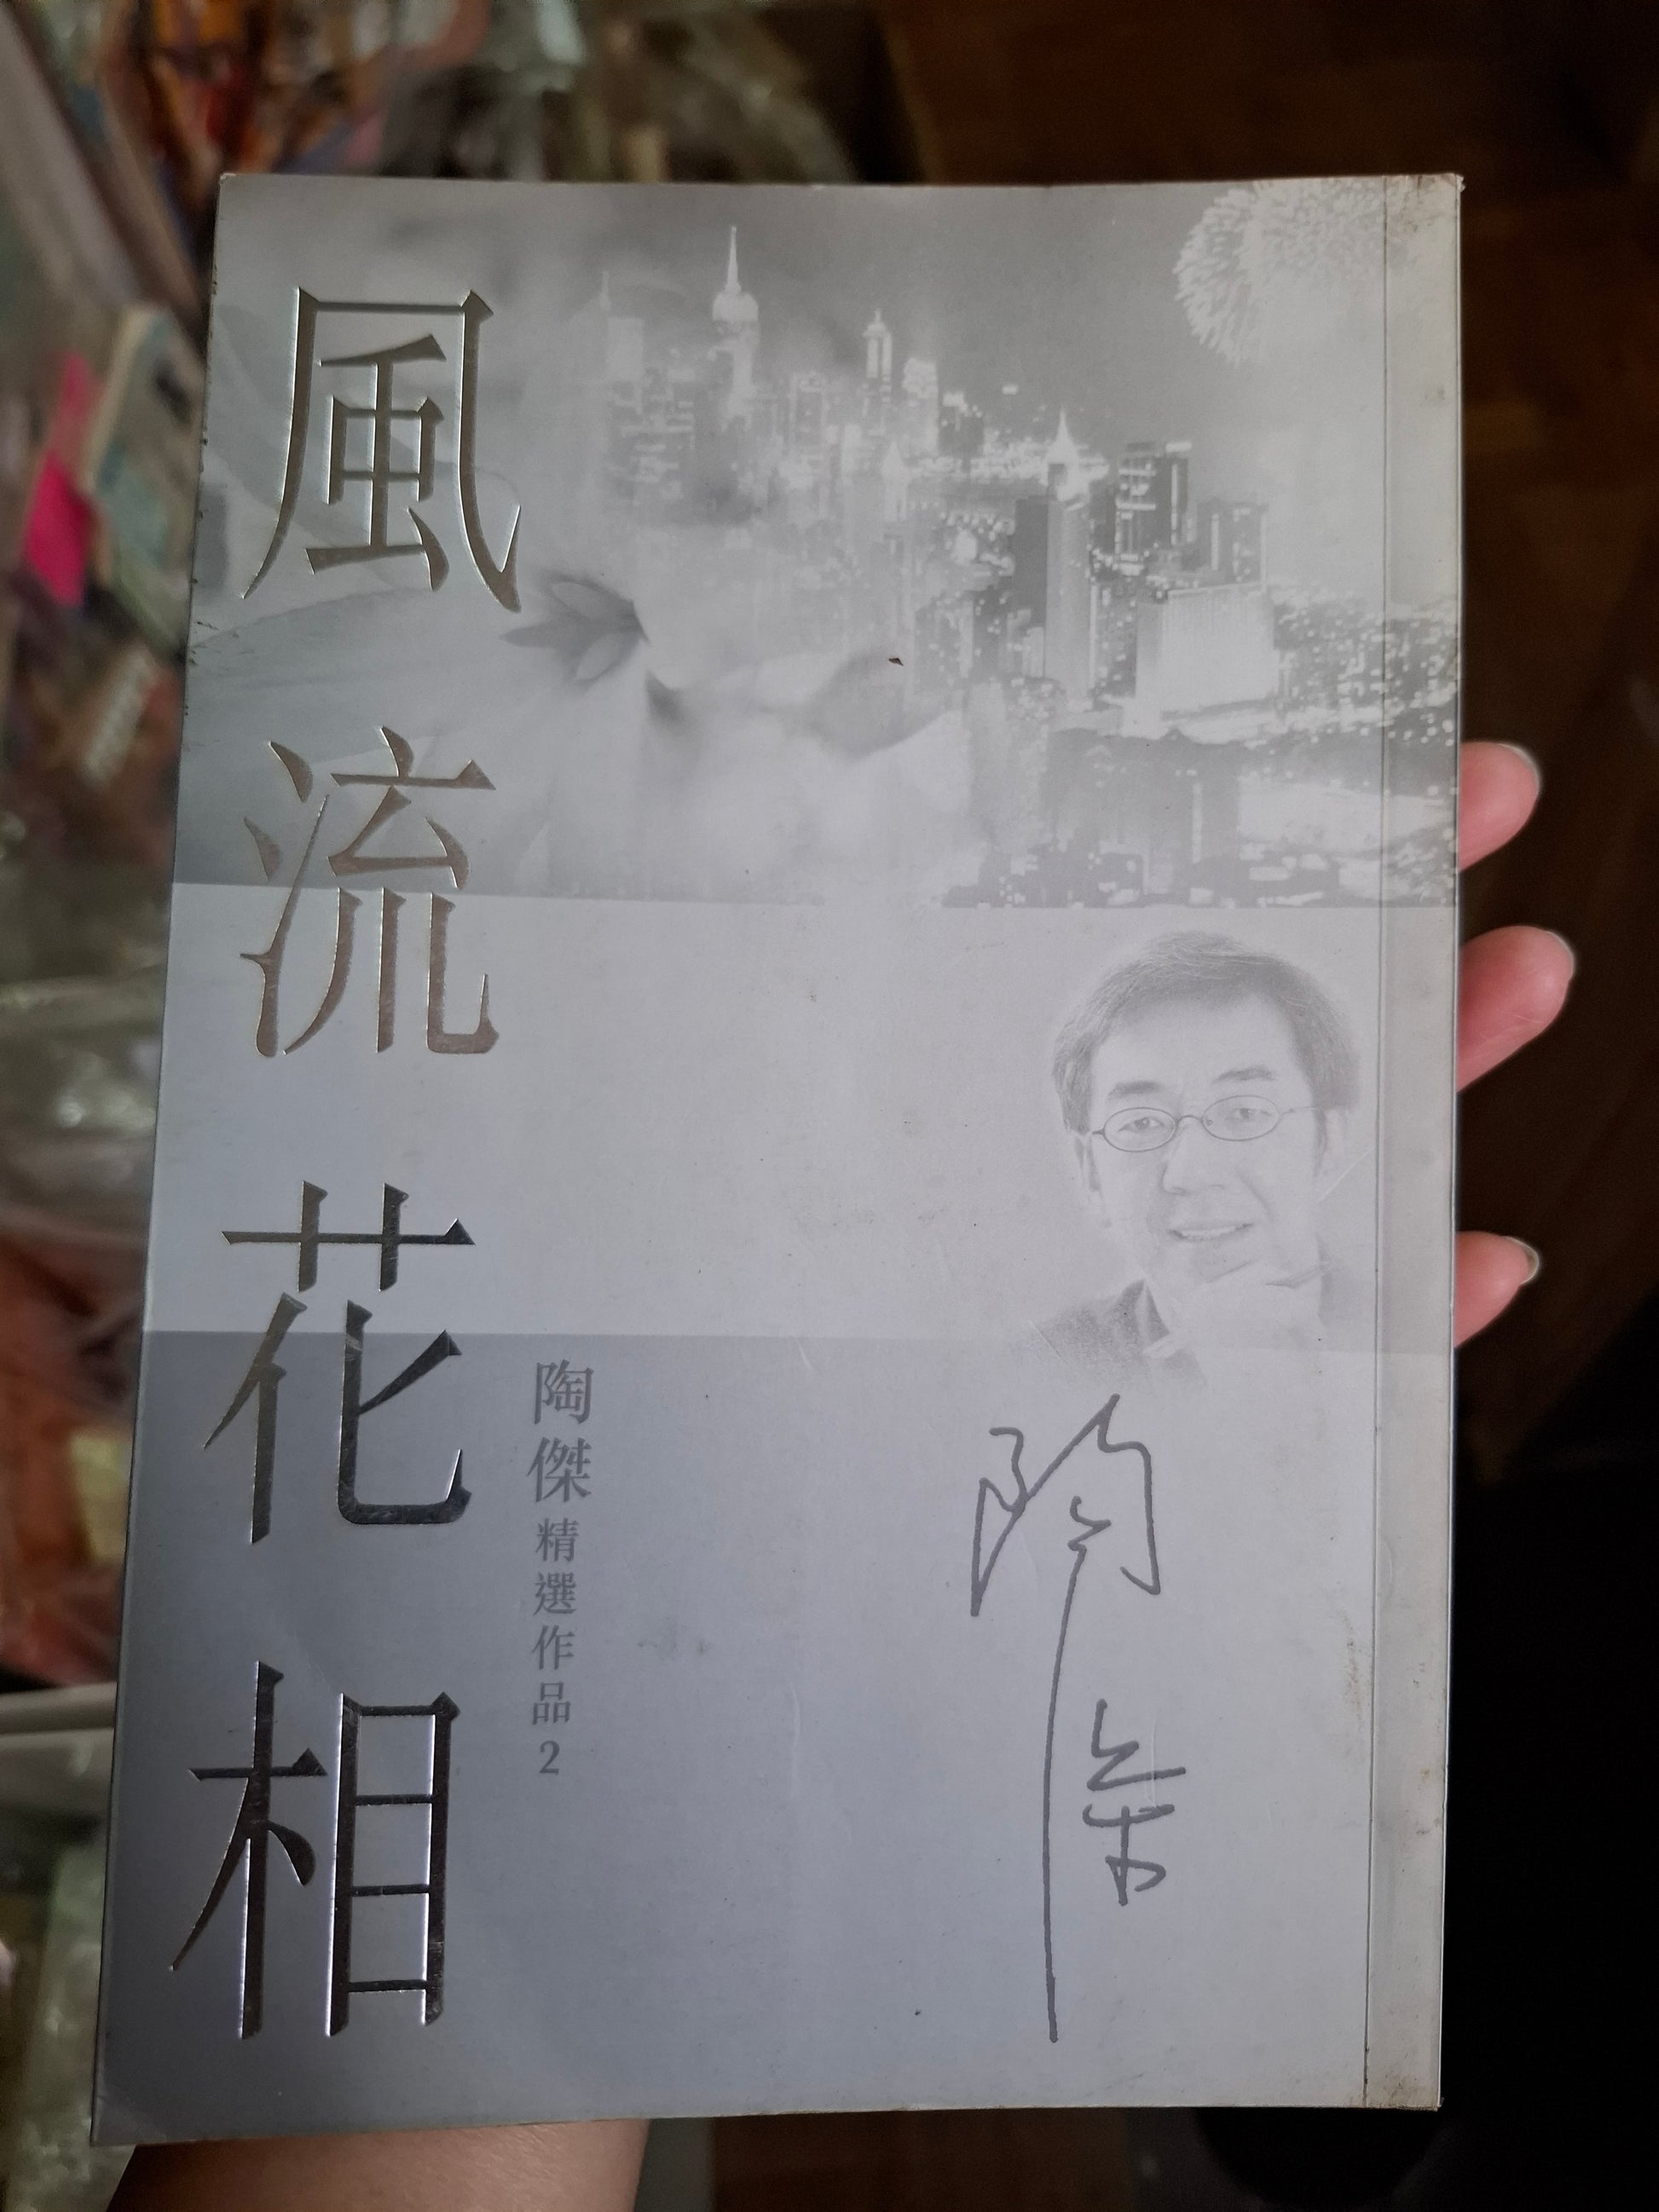 風流花相
陶傑精選作品2
陶傑